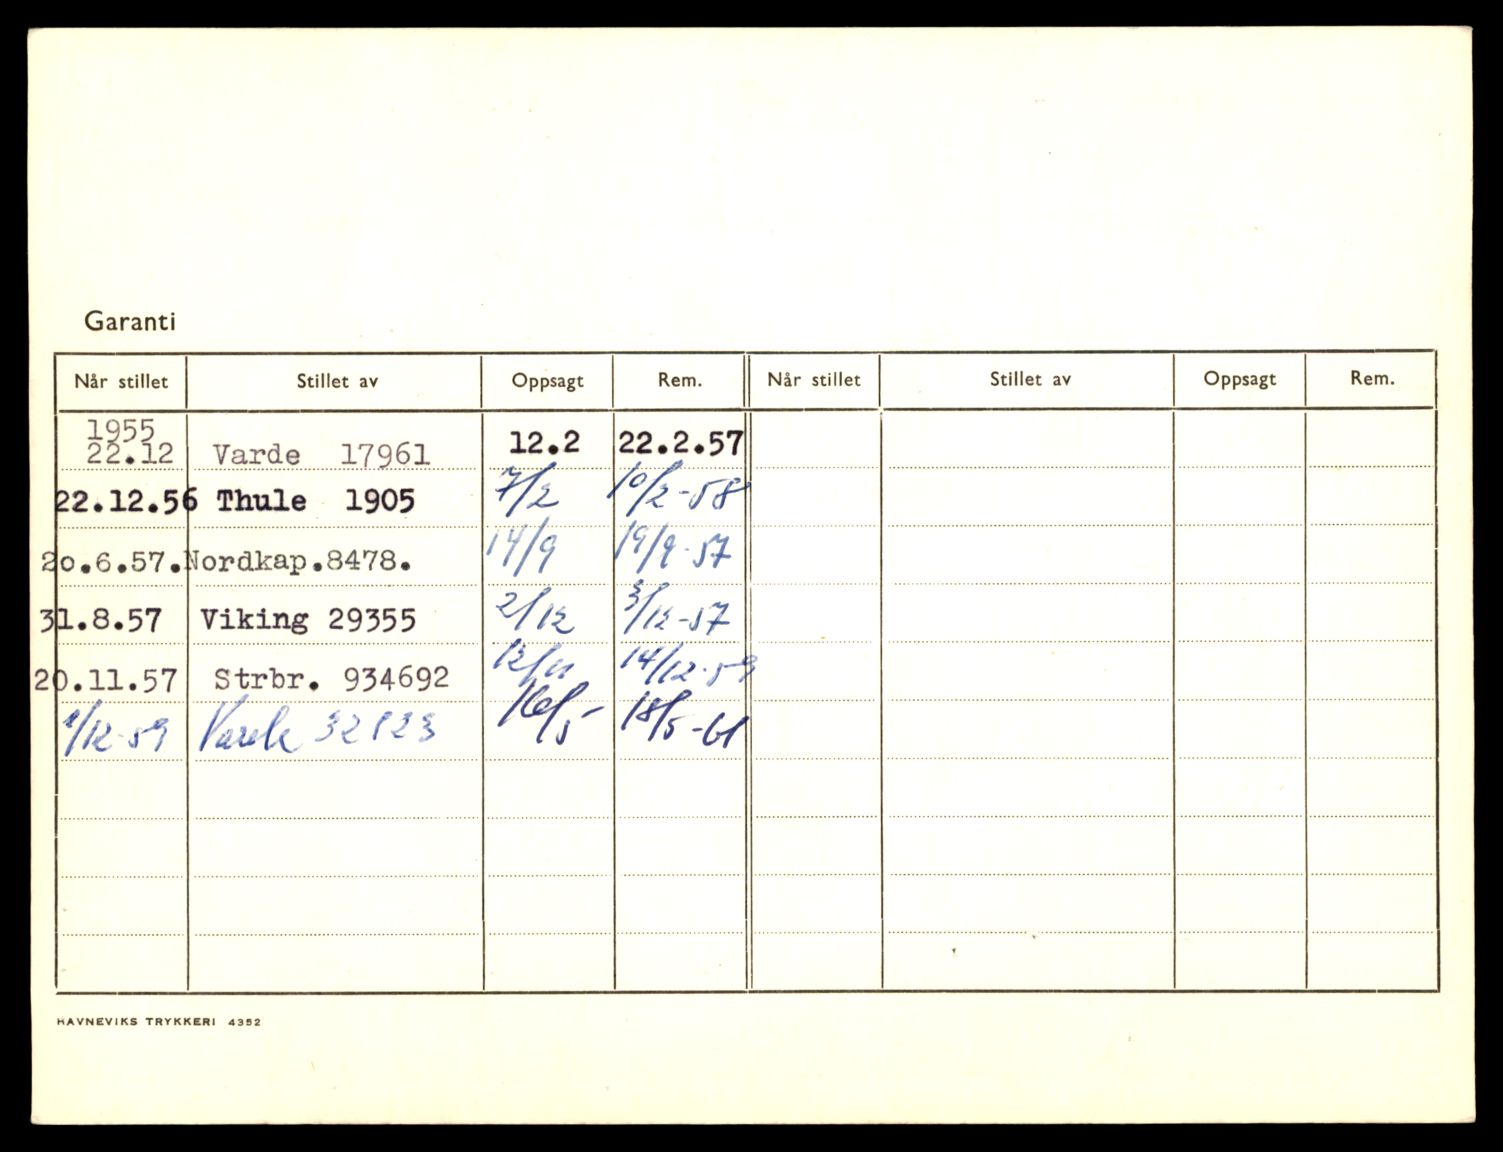 Garanti
Når stillet Stillet av Oppsagt Rem. Når stillet Stillet av Oppsagt Rem.
1955
22.12 Varde 17961 12.2 22.2.57
22.12.56 Thule 1905 7/2 10/2-58
20.6.57. Nordkap.8478. 14/9 19/9-57
31.8.57 Viking 29355 2/12 3/12-57
20.11.57 Strbr. 934692 12/11 14/12-59
1/12-59 Varde 16/5- 18/5-61
HAVNEVIKS TRYKKERI 4352